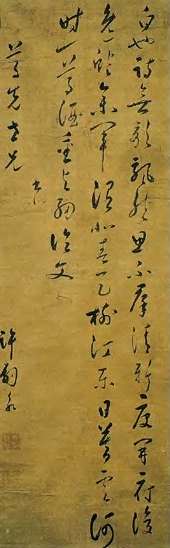 白也詩無敵飄然思不群清新庾開府俊
逸鮑參軍渭北春天樹江東日暮雲何
時一尊酒重與細論文
先老兄
許